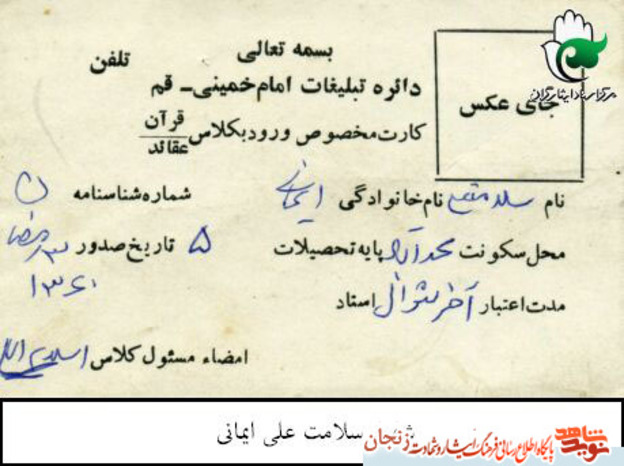 بسمه تعالی
تلفن
دائره تبلیغات امام خمینی - قم
کارت مخصوص ورود بکلاس قرآن عقائد
جای عکس
مرکز اسناد ایثارگران
نام نام خانوادگی ایمانی شماره شناسنامه ۵
محل سکونت محمدآباد پایه تحصیلات ۵ تاریخ صدور ۱۳۶۰
مدت اعتبار آخر شوال استاد
امضاء مسئول کلاس
سلامت علی ایمانی
نوید شاهد
پایگاه اطلاع رسانی فرهنگ ایثار و شهادت زنجان